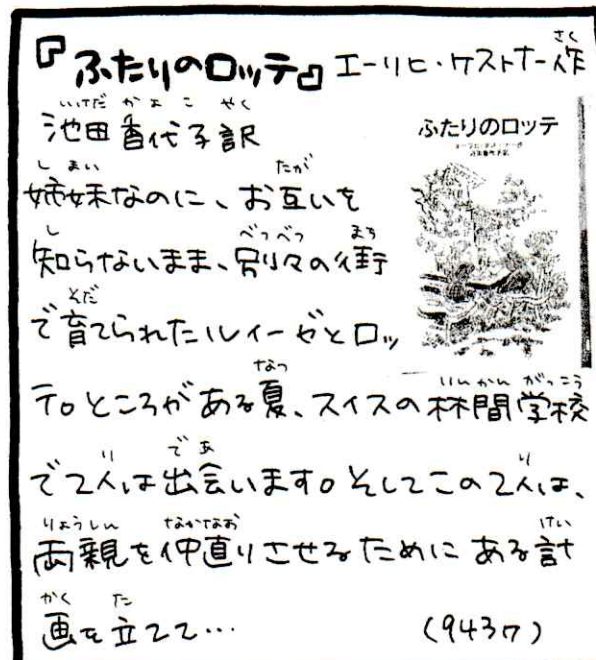 『ふたりのロッテ』 エーリヒ・ケストナー作
池田香代子訳
ふたりのロッテ
姉妹なのに、お互いを
知らないまま、別々の街
で育てられたルイーゼとロッ
テ。ところがある夏、スイスの林間学校
で2人は出会います。そしてこの2人は、
両親を仲直りさせるためにある計
画を立てて…
(943ケ)